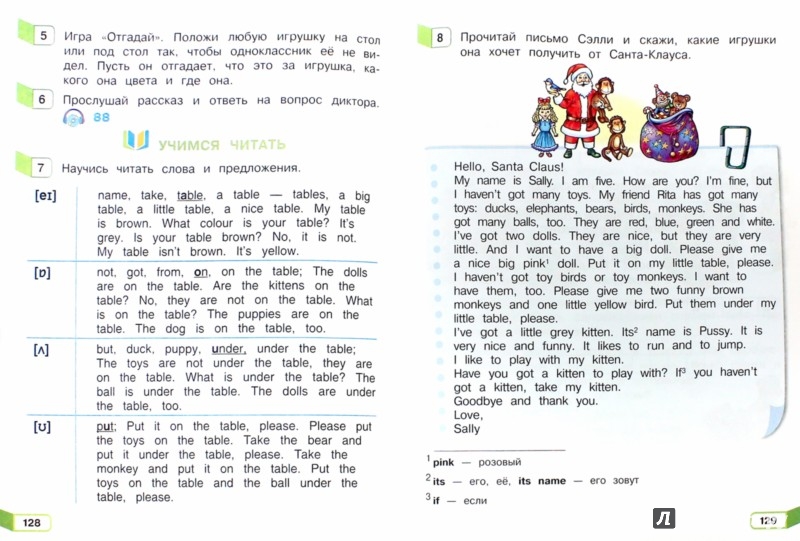 5 Игра «Отгадай». Положи любую игрушку на стол
или под стол так, чтобы одноклассник её не ви-
дел. Пусть он отгадает, что это за игрушка, ка-
кого она цвета и где она.
6 Прослушай рассказ и ответь на вопрос диктора.
88
УЧИМСЯ ЧИТАТЬ
7 Научись читать слова и предложения.
[eɪ] name, take, table, a table — tables, a big
table, a little table, a nice table. My table
is brown. What colour is your table? It's
grey. Is your table brown? No, it is not.
My table isn't brown. It's yellow.
[ɒ] not, got, from, on, on the table; The dolls
are on the table. Are the kittens on the
table? No, they are not on the table. What
is on the table? The puppies are on the
table. The dog is on the table, too.
[ʌ] but, duck, puppy, under, under the table;
The toys are not under the table, they are
on the table. What is under the table? The
ball is under the table. The dolls are under
the table, too.
[ʊ] put; Put it on the table, please. Please put
the toys on the table. Take the bear and
put it under the table, please. Take the
monkey and put it on the table. Put the
toys on the table and the ball under the
table, please.
128
8 Прочитай письмо Сэлли и скажи, какие игрушки
она хочет получить от Санта-Клауса.
Hello, Santa Claus!
My name is Sally. I am five. How are you? I'm fine, but
I haven't got many toys. My friend Rita has got many
toys: ducks, elephants, bears, birds, monkeys. She has
got many balls, too. They are red, blue, green and white.
I've got two dolls. They are nice, but they are very
little. And I want to have a big doll. Please give me
a nice big pink¹ doll. Put it on my little table, please.
I haven't got toy birds or toy monkeys. I want to
have them, too. Please give me two funny brown
monkeys and one little yellow bird. Put them under my
little table, please.
I've got a little grey kitten. Its² name is Pussy. It is
very nice and funny. It likes to run and to jump.
I like to play with my kitten.
Have you got a kitten to play with? If³ you haven't
got a kitten, take my kitten.
Goodbye and thank you.
Love,
Sally
¹ pink — розовый
² its — его, её, its name — его зовут
³ if — если
Л
129